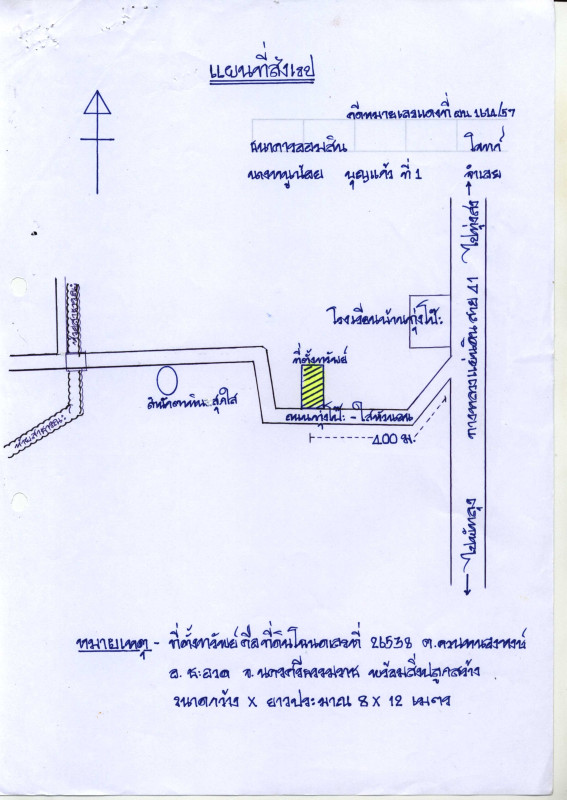 แผนที่สังเขป
คดีหมายเลขแดงที่ ผบ. 1614/57
ธนาคารออมสิน โจทก์
นางหนูน้อย บุญแก้ว ที่ 1 จำเลย
ไปทุ่งสง
ทางหลวงแผ่นดิน สาย 41
ไปพัทลุง
โรงเรียนบ้านทุ่งโป๊ะ
ที่ตั้งทรัพย์
ถนนทุ่งโป๊ะ - ใสหัวเลน
400 ม.
สุดใส
หมายเหตุ - ที่ตั้งทรัพย์ คือ ที่ดินโฉนดเลขที่ 26538 ต.ควนหนองหงษ์
อ. ชะอวด จ. นครศรีธรรมราช พร้อมสิ่งปลูกสร้าง
ขนาดกว้าง x ยาวประมาณ 8 x 12 เมตร